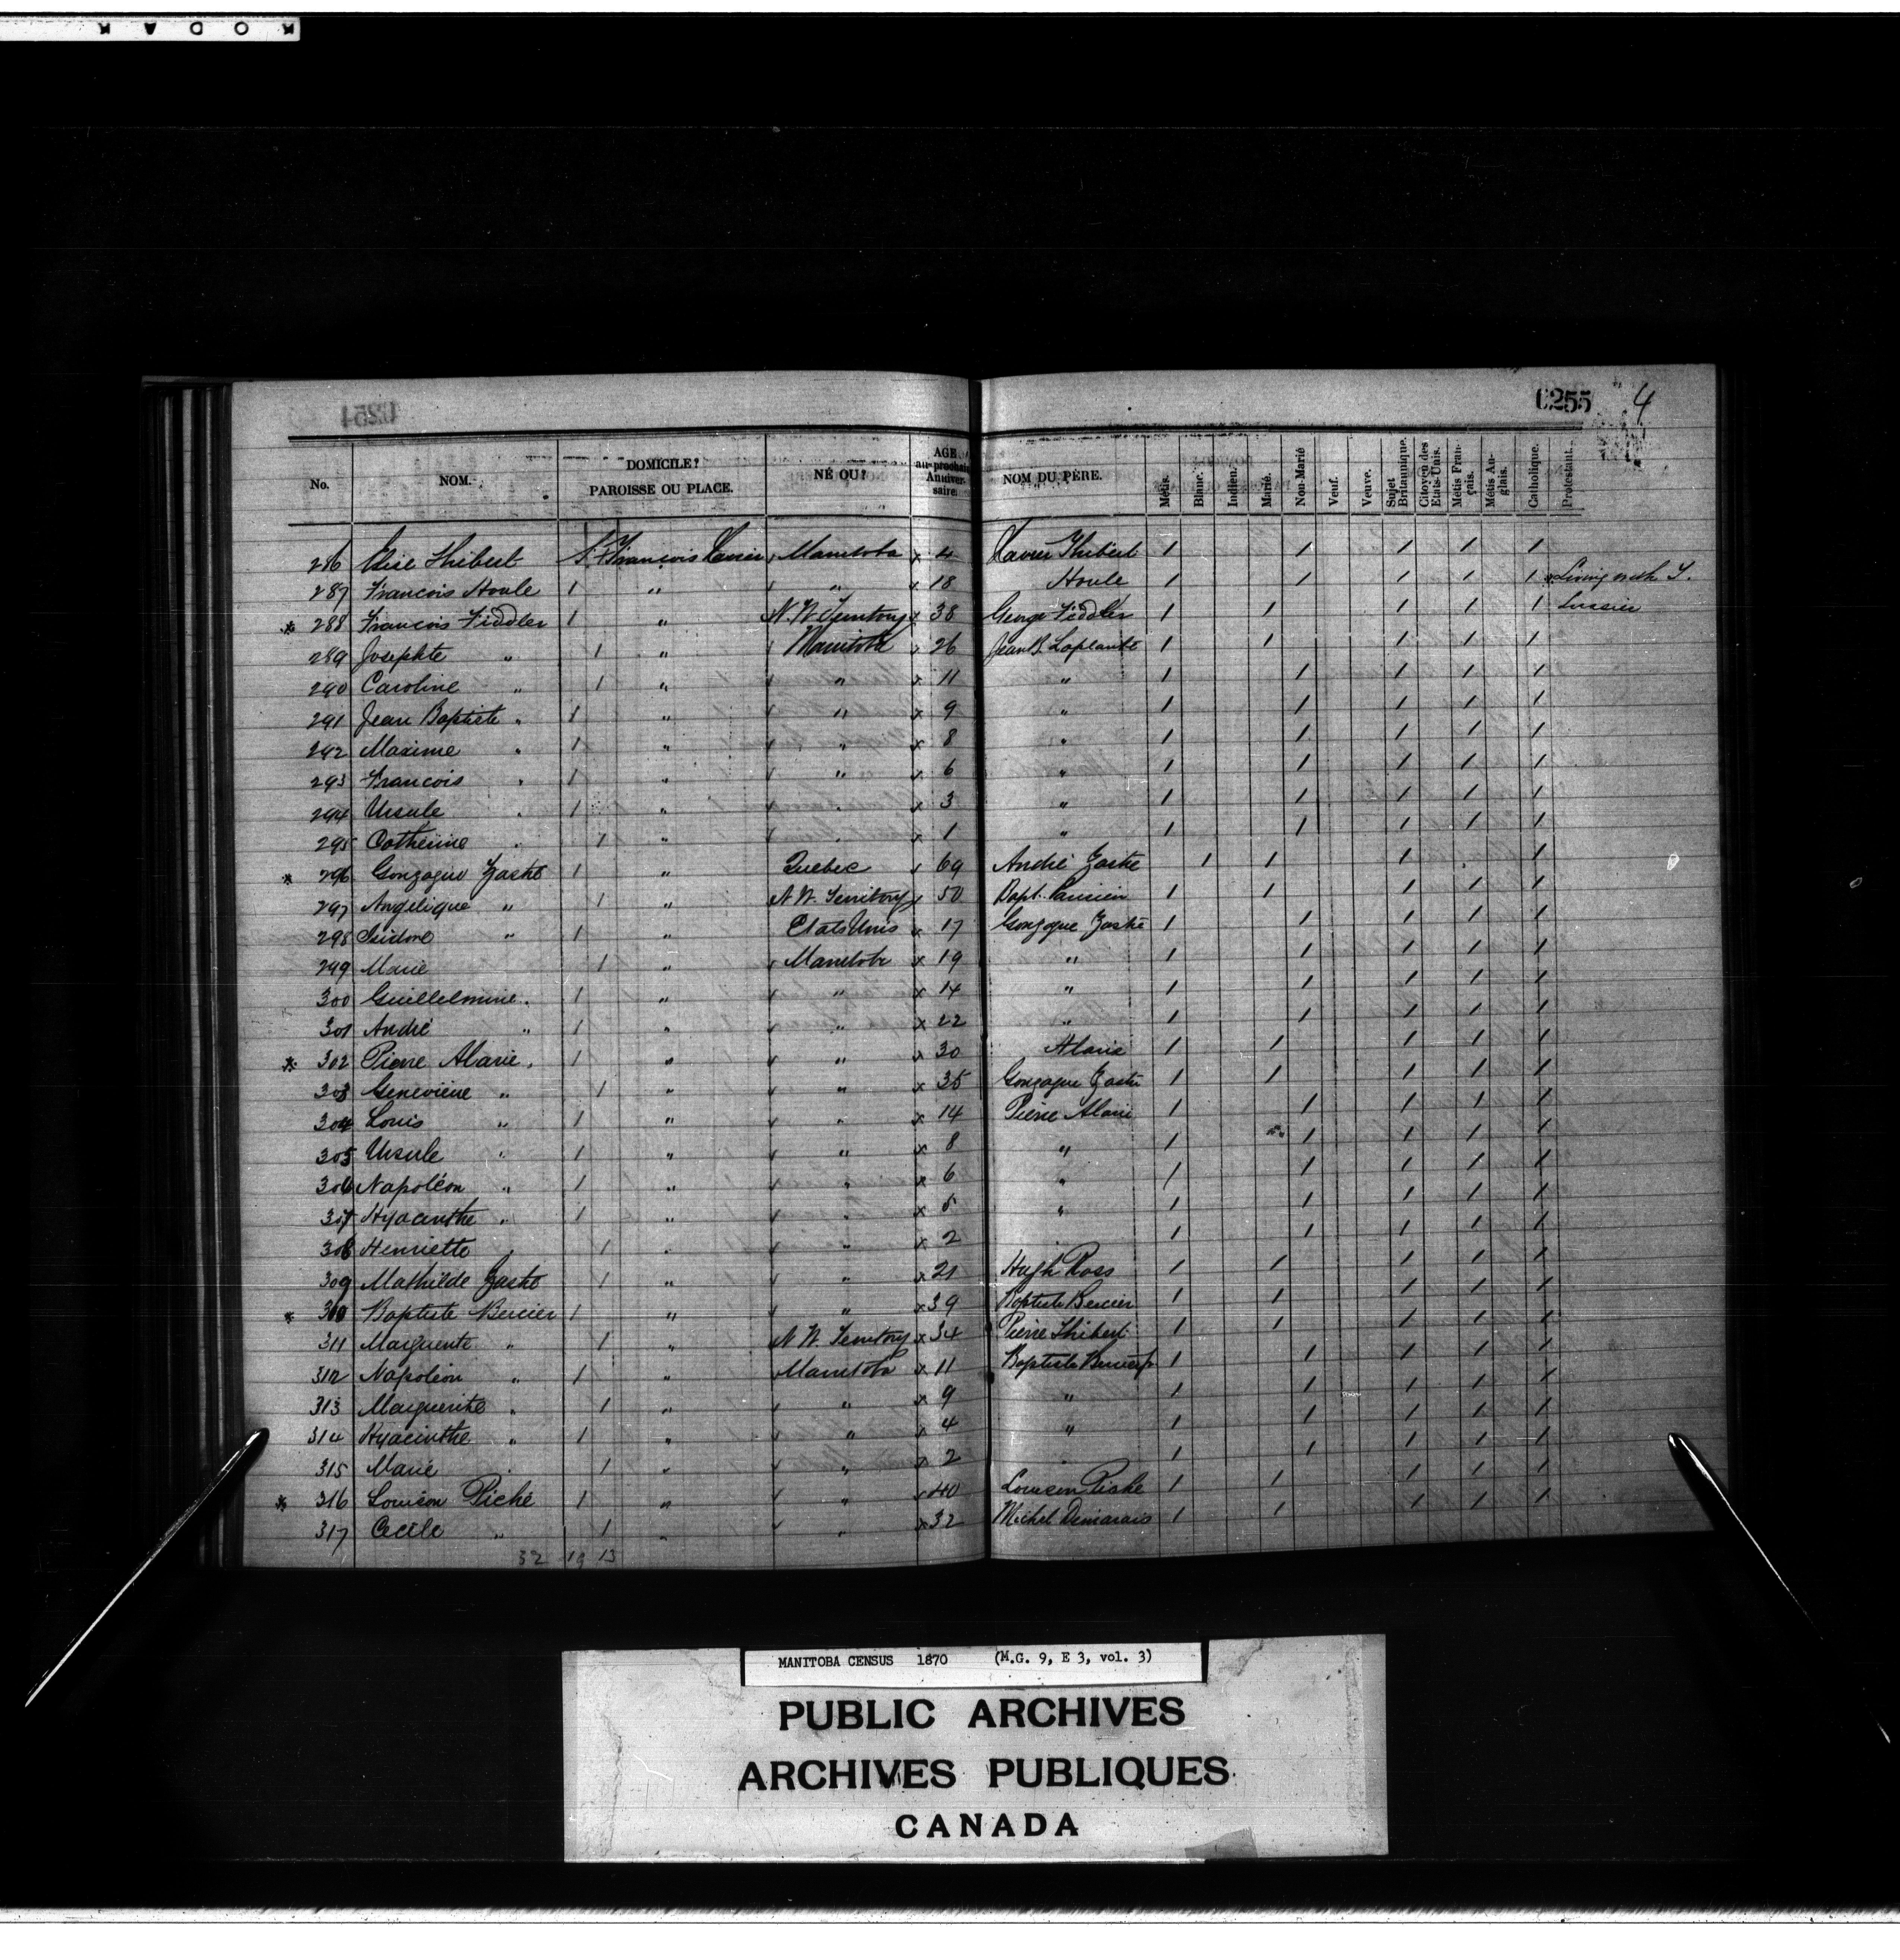 KODAK
0254
0255 4
No. NOM. DOMICILE? PAROISSE OU PLACE. NÉ OU? AGE au prochain Anniversaire. NOM DU PÈRE. Métis. Blanc. Indien. Marié. Non-Marié Veuf. Veuve. Sujet Britannique. Citoyen des Etats-Unis. Métis Français. Métis Anglais. Catholique. Protestant.
286 Elise Thibert 1 St François Xavier Manitoba x 4 Xavier Thibert 1 1 1 1 1
287 Francois Houle 1 " " x 18 Houle 1 1 1 1 1 x Living with T.
* 288 Francois Fiddler 1 " N. W. Territory x 38 George Fiddler 1 1 1 1 1 Lussier
289 Josephte " 1 " Manitoba x 26 Jean B. Laplante 1 1 1 1 1
290 Caroline " 1 " " x 11 " 1 1 1 1 1
291 Jean Baptiste " 1 " " x 9 " 1 1 1 1 1
292 Maxime " 1 " " x 8 " 1 1 1 1 1
293 Francois " 1 " " x 6 " 1 1 1 1 1
294 Ursule " 1 " " x 3 " 1 1 1 1 1
295 Catherine " 1 " " x 1 " 1 1 1 1 1
* 296 Gonzague Zasté 1 " Quebec x 69 André Zaste 1 1 1 1
297 Angelique " 1 " N. W. Territory x 50 Bapt. Parisien 1 1 1 1 1
298 Isidore " 1 " Etats Unis x 17 Gonzague Zasté 1 1 1 1 1
299 Marie 1 " Manitoba x 19 " 1 1 1 1 1
300 Guillelmine 1 " " x 14 " 1 1 1 1 1
301 André " 1 " " x 22 " 1 1 1 1 1
* 302 Pierre Alarie 1 " " x 30 Alarie 1 1 1 1 1
303 Genevieve " 1 " " x 35 Gonzague Zasté 1 1 1 1 1
304 Louis " 1 " " x 14 Pierre Alarie 1 1 1 1 1
305 Ursule " 1 " " x 8 " 1 1 1 1 1
306 Napoléon " 1 " " x 6 " 1 1 1 1 1
307 Hyacinthe " 1 " " x 5 " 1 1 1 1 1
308 Henriette " 1 " " x 2 1 1 1 1 1
309 Mathilde Zasté 1 " " x 21 Hugh Ross 1 1 1 1 1
* 310 Baptiste Bercier 1 " " x 39 Baptiste Bercier 1 1 1 1 1
311 Marguerite " 1 " N. W. Territory x 34 Pierre Thibert 1 1 1 1 1
312 Napoléon " 1 " Manitoba x 11 Baptiste Bercier 1 1 1 1 1
313 Marguerite " 1 " " x 9 " 1 1 1 1 1
314 Hyacinthe " 1 " " x 4 " 1 1 1 1 1
315 Marie " 1 " " x 2 1 1 1 1 1
* 316 Louison Piché 1 " " x 40 Louison Piche 1 1 1 1 1
317 Cecile " 1 " " x 32 Michel Demarais 1 1 1 1 1
32 19 13
MANITOBA CENSUS 1870 (M.G. 9, E 3, vol. 3)
PUBLIC ARCHIVES
ARCHIVES PUBLIQUES
CANADA